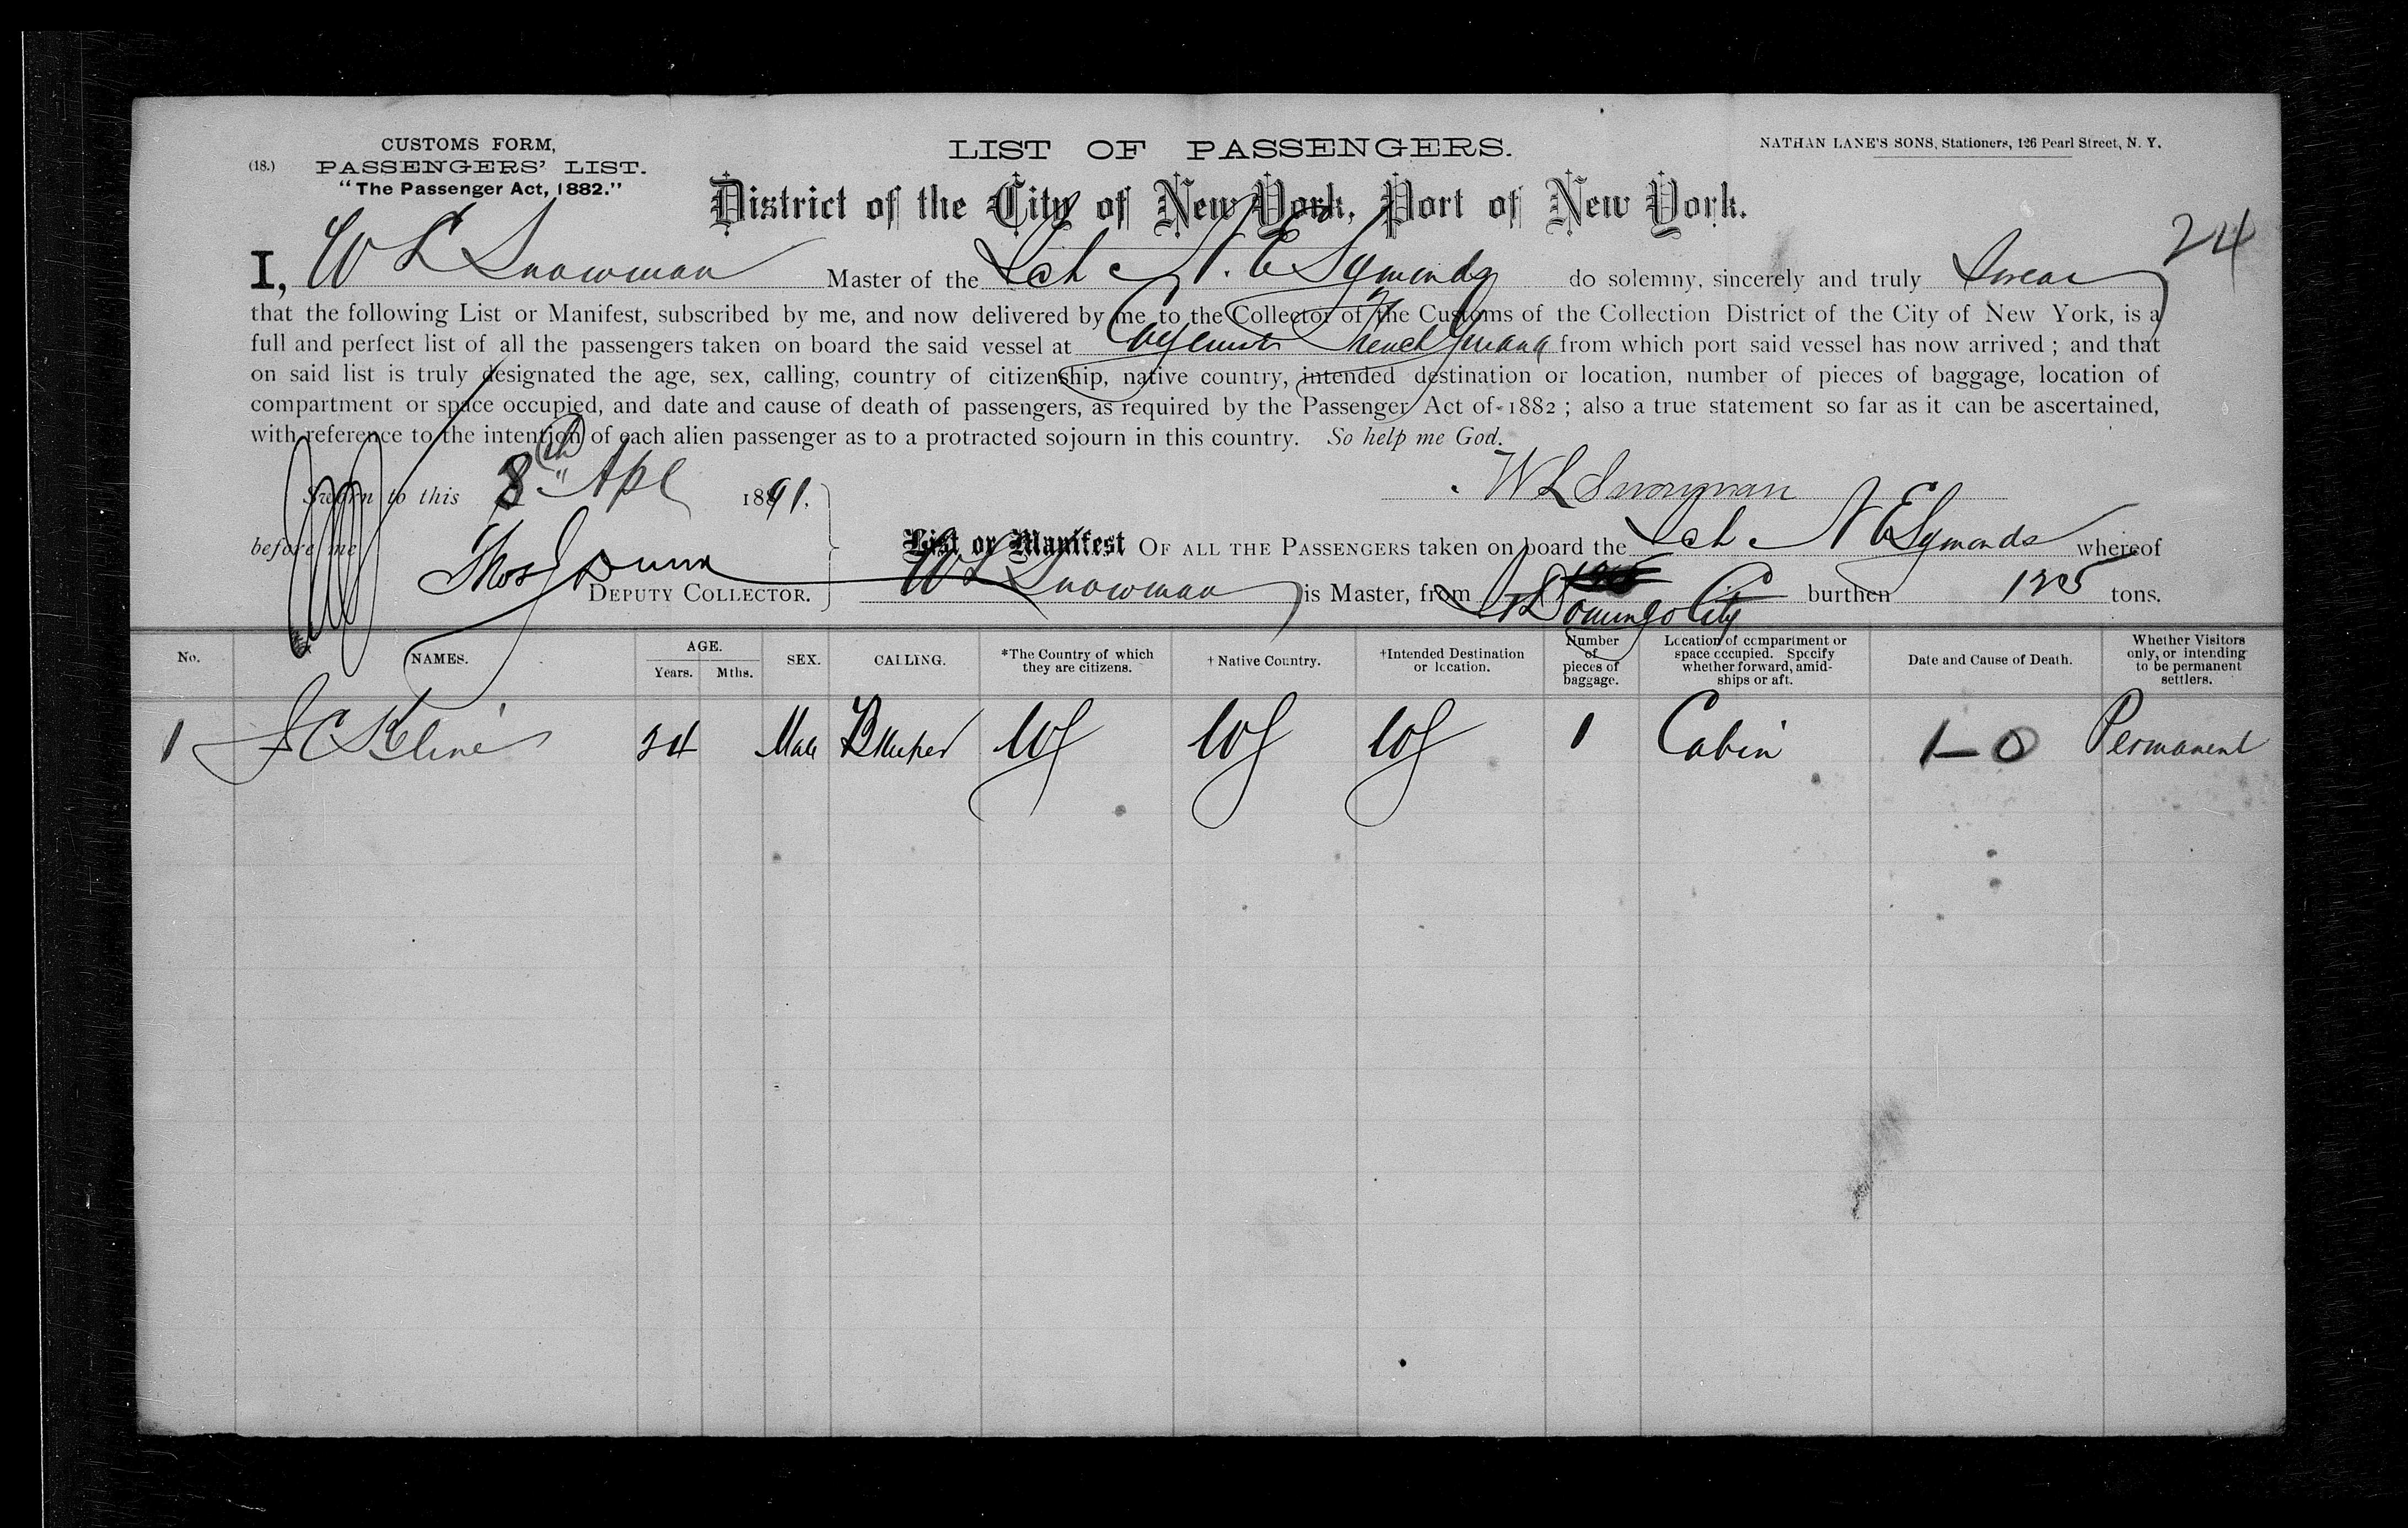 CUSTOMS FORM,
(18.) PASSENGERS' LIST.
"The Passenger Act, 1882."
LIST OF PASSENGERS.
NATHAN LANE'S SONS, Stationers, 126 Pearl Street, N. Y.
District of the City of New York, Port of New York.
24
I, W L Snowman Master of the Sch N. E Symonds do solemny, sincerely and truly Swear
that the following List or Manifest, subscribed by me, and now delivered by me to the Collector of the Customs of the Collection District of the City of New York, is a
full and perfect list of all the passengers taken on board the said vessel at French Guiana from which port said vessel has now arrived; and that
on said list is truly designated the age, sex, calling, country of citizenship, native country, intended destination or location, number of pieces of baggage, location of
compartment or space occupied, and date and cause of death of passengers, as required by the Passenger Act of 1882; also a true statement so far as it can be ascertained,
with reference to the intention of each alien passenger as to a protracted sojourn in this country. So help me God.
Sworn to this 8th Apl 1891. W L Snowman
before me Thos J Dunn
DEPUTY COLLECTOR.
List or Manifest OF ALL THE PASSENGERS taken on board the Sch N E Symonds whereof
W L Snowman is Master, from St Domingo City burthen 125 tons.
No. NAMES. AGE. Years. Mths. SEX. CALLING. *The Country of which they are citizens. †Native Country. †Intended Destination or location. Number of pieces of baggage. Location of compartment or space occupied. Specify whether forward, amidships or aft. Date and Cause of Death. Whether Visitors only, or intending to be permanent settlers.
1 J C Kline 34 Male US US US 1 Cabin 1-0 Permanent